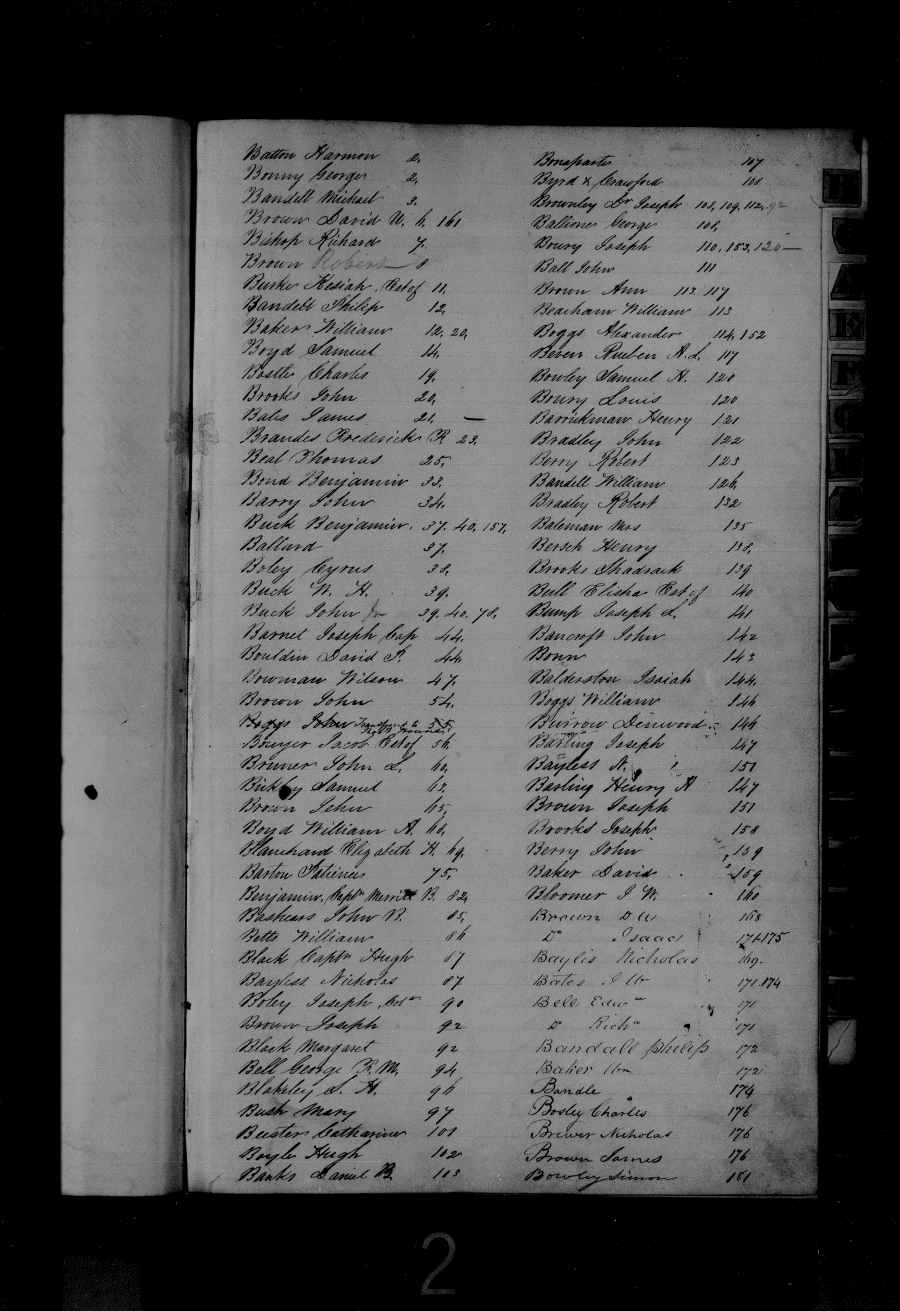 Batton Harmon 2.
Bonny George 2.
Bandell Michael 3.
Brown David U. h. 161
Bishop Richard 7.
Brown Robert 8
Burke Kesiah, Est of 11.
Bandell Philip 12.
Baker William 12, 20,
Boyd Samuel 14.
Bostler Charles 19.
Brooks John 20,
Bates James 21, —
Brandes Roedericks R. 23.
Beal Thomas 25,
Bond Benjamin 33.
Barry John 34.
Buck Benjamin. 37. 40, 157,
Ballard 37.
Boley Cyrus 38,
Buck W. H. 39.
Buck John Jr 39. 40. 78.
Barnet Joseph Cap 44.
Bouldin David P. 44.
Bowman Wilson 47.
Brown John 54.
Boggs John Transferred to 55.
Bouyer Jacob Est of 56.
Bruner John L. 60.
Bickley Samuel 63.
Brown John 65,
Boyd William A. 68,
Blanchard Elizabeth H. 69.
Barton 75,
Benjamin, Captn Merritt B. 82,
Bashears John B. 85,
Betts William 86
Black Captn Hugh 87
Bayless Nicholas 87
Boley Joseph, 90
Brown Joseph 92
Black Margaret 92
Bell George R. M. 94
Blakeley S. H. 96
Bush Mary 97
Buster Catharine 101
Boyle Hugh 102
Banks Daniel B. 103
Bonaparte 107
Byrd & Crawford 108
Brownley Dr Joseph 108, 109, 112, 92
Ballione George 108,
Boury Joseph 110, 153, 120—
Ball John 111
Brown Ann 113. 117
Beacham William 113
Boggs Alexander 114, 152
Beven Rueben A. L. 117
Bowley Samuel H. 120
Boury Louis 120
Barrickman Henry 121
Bradley John 122
Berry Robert 123
Bandell William 126
Bradley Robert 132
Bateman Mrs 135
Bersch Henry 138,
Brooks Shadrack 139
Bull Elisha Est of 140
Bump Joseph L. 141
Bancroft John 142
Bonn 143
Balderston Isaiah 144.
Boggs William 146
Burrow Dinwood 146
Barling Joseph 147
Bayless N. 151
Barling Henry A 147
Brown Joseph 151
Brooks Joseph 158
Berry John 159
Baker David 159
Bloomer J W. 160
Brown D W 168
Do Isaac 171-175
Baylis Nicholas 169.
Bates J W 171.174
Bell Edwd 171
Do Richd 171
Bandall Philip 172
Baker Wm 172
Bandle 174
Bosley Charles 176
Brewer Nicholas 176
Brown James 176
Bowley Simon 181
B
2